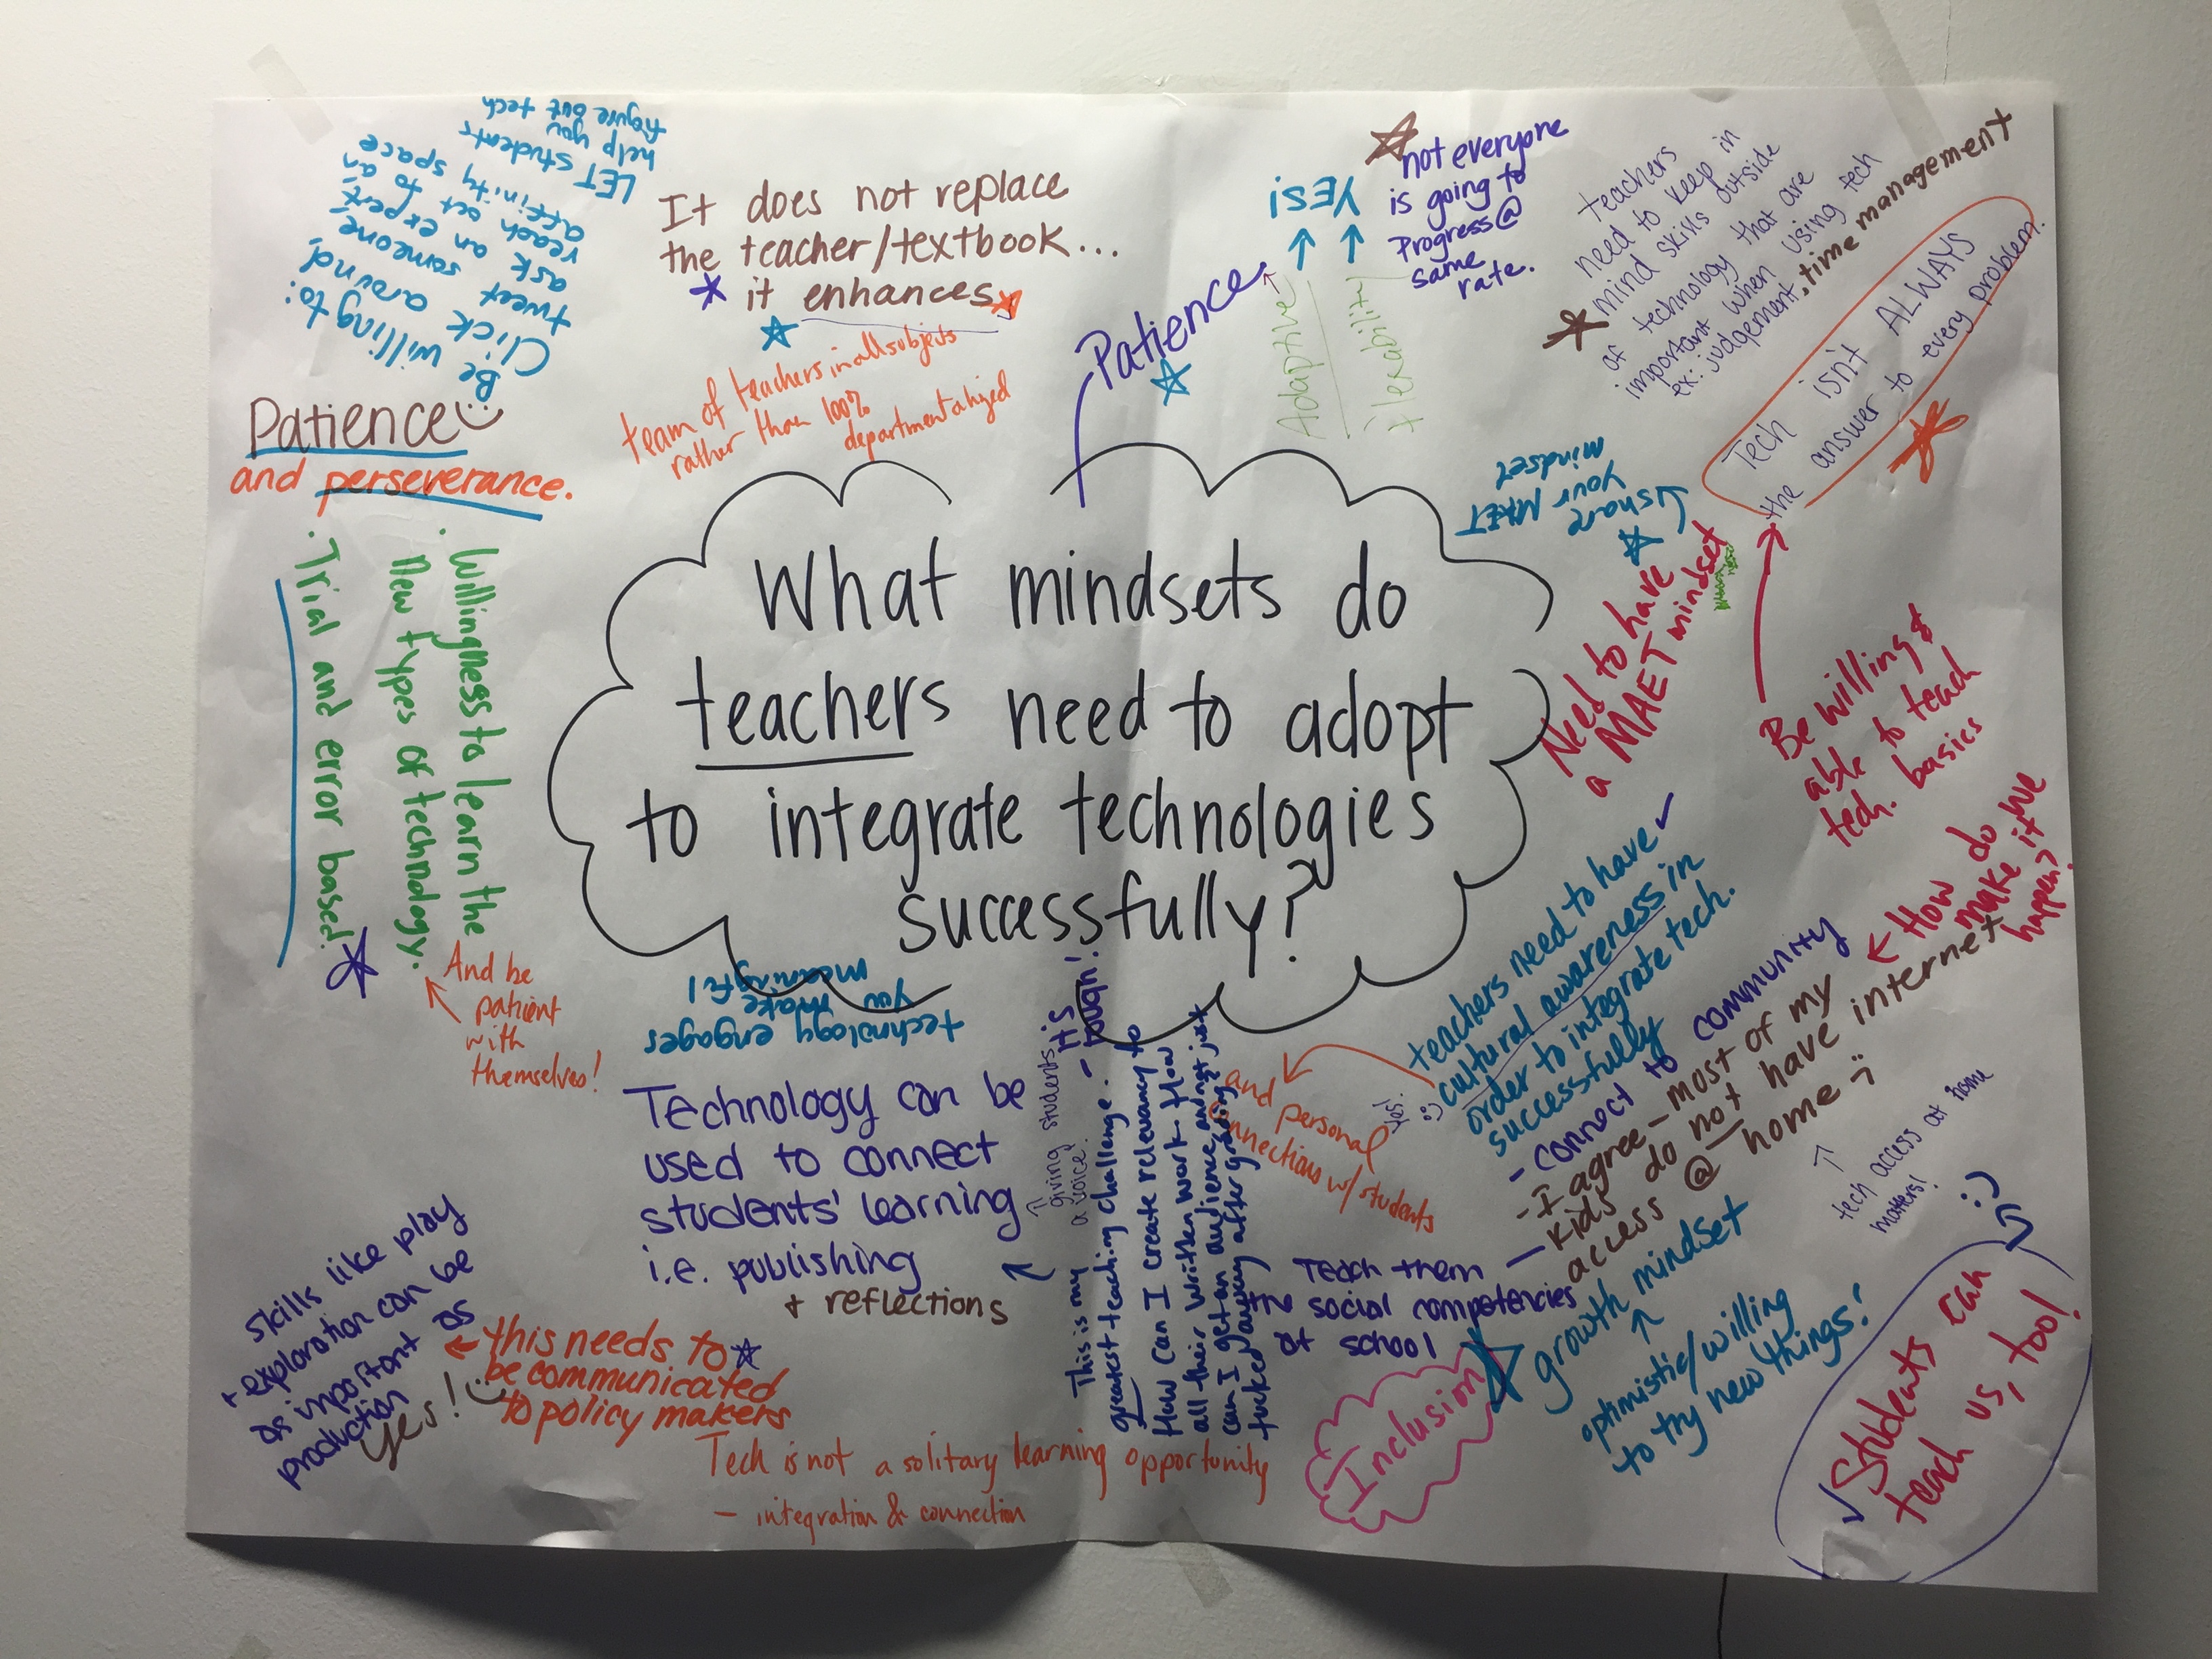 What mindsets do
teachers need to adopt
to integrate technologies
successfully?
Be willing to:
Click around,
tweet someone,
ask an expert
reach out to an
affinity space
LET students
help you
figure out tech
It does not replace
the teacher/textbook...
it enhances
team of teachers in all subjects
rather than 100%
departmentalized
Patience
Adaptive
flexability
YES!
not everyone
is going to
Progress@
same
rate.
teachers
need to keep in
mind skills outside
of technology that are
important when using tech
ex: judgement, time management
Tech isn't ALWAYS
the answer to every problem.
share your MAET
mindset
Need to have
a MAET mindset
Be willing &
able to teach
tech. basics
Patience
and perseverance.
. Willingness to learn the
New types of technology.
. Trial and error based.
And be
patient
with
themselves!
technology engages
you make
meaningful
Technology can be
used to connect
students' learning
i.e. publishing
+ reflections
giving students
a voice!
- it's
tough!
This is my
greatest teaching challenge.
How can I create relevancy to
all their written work + how
can I get an audience and not just
tucked away after grading?
teachers need to have
cultural awareness in
order to integrate tech.
successfully
Yes!
and personal
connections w/ students
- connect to community
- I agree - most of my
kids do not have internet
access @ home
How do we
make it
happen?
tech access at home
matters!
Teach them
the social competencies
at school
growth mindset
optimistic/willing
to try new things!
Inclusion
Students can
teach us, too!
skills like play
+ exploration can be
as important as
production
Yes!
this needs to
be communicated
to policy makers
Tech is not a solitary learning opportunity
- integration & connection